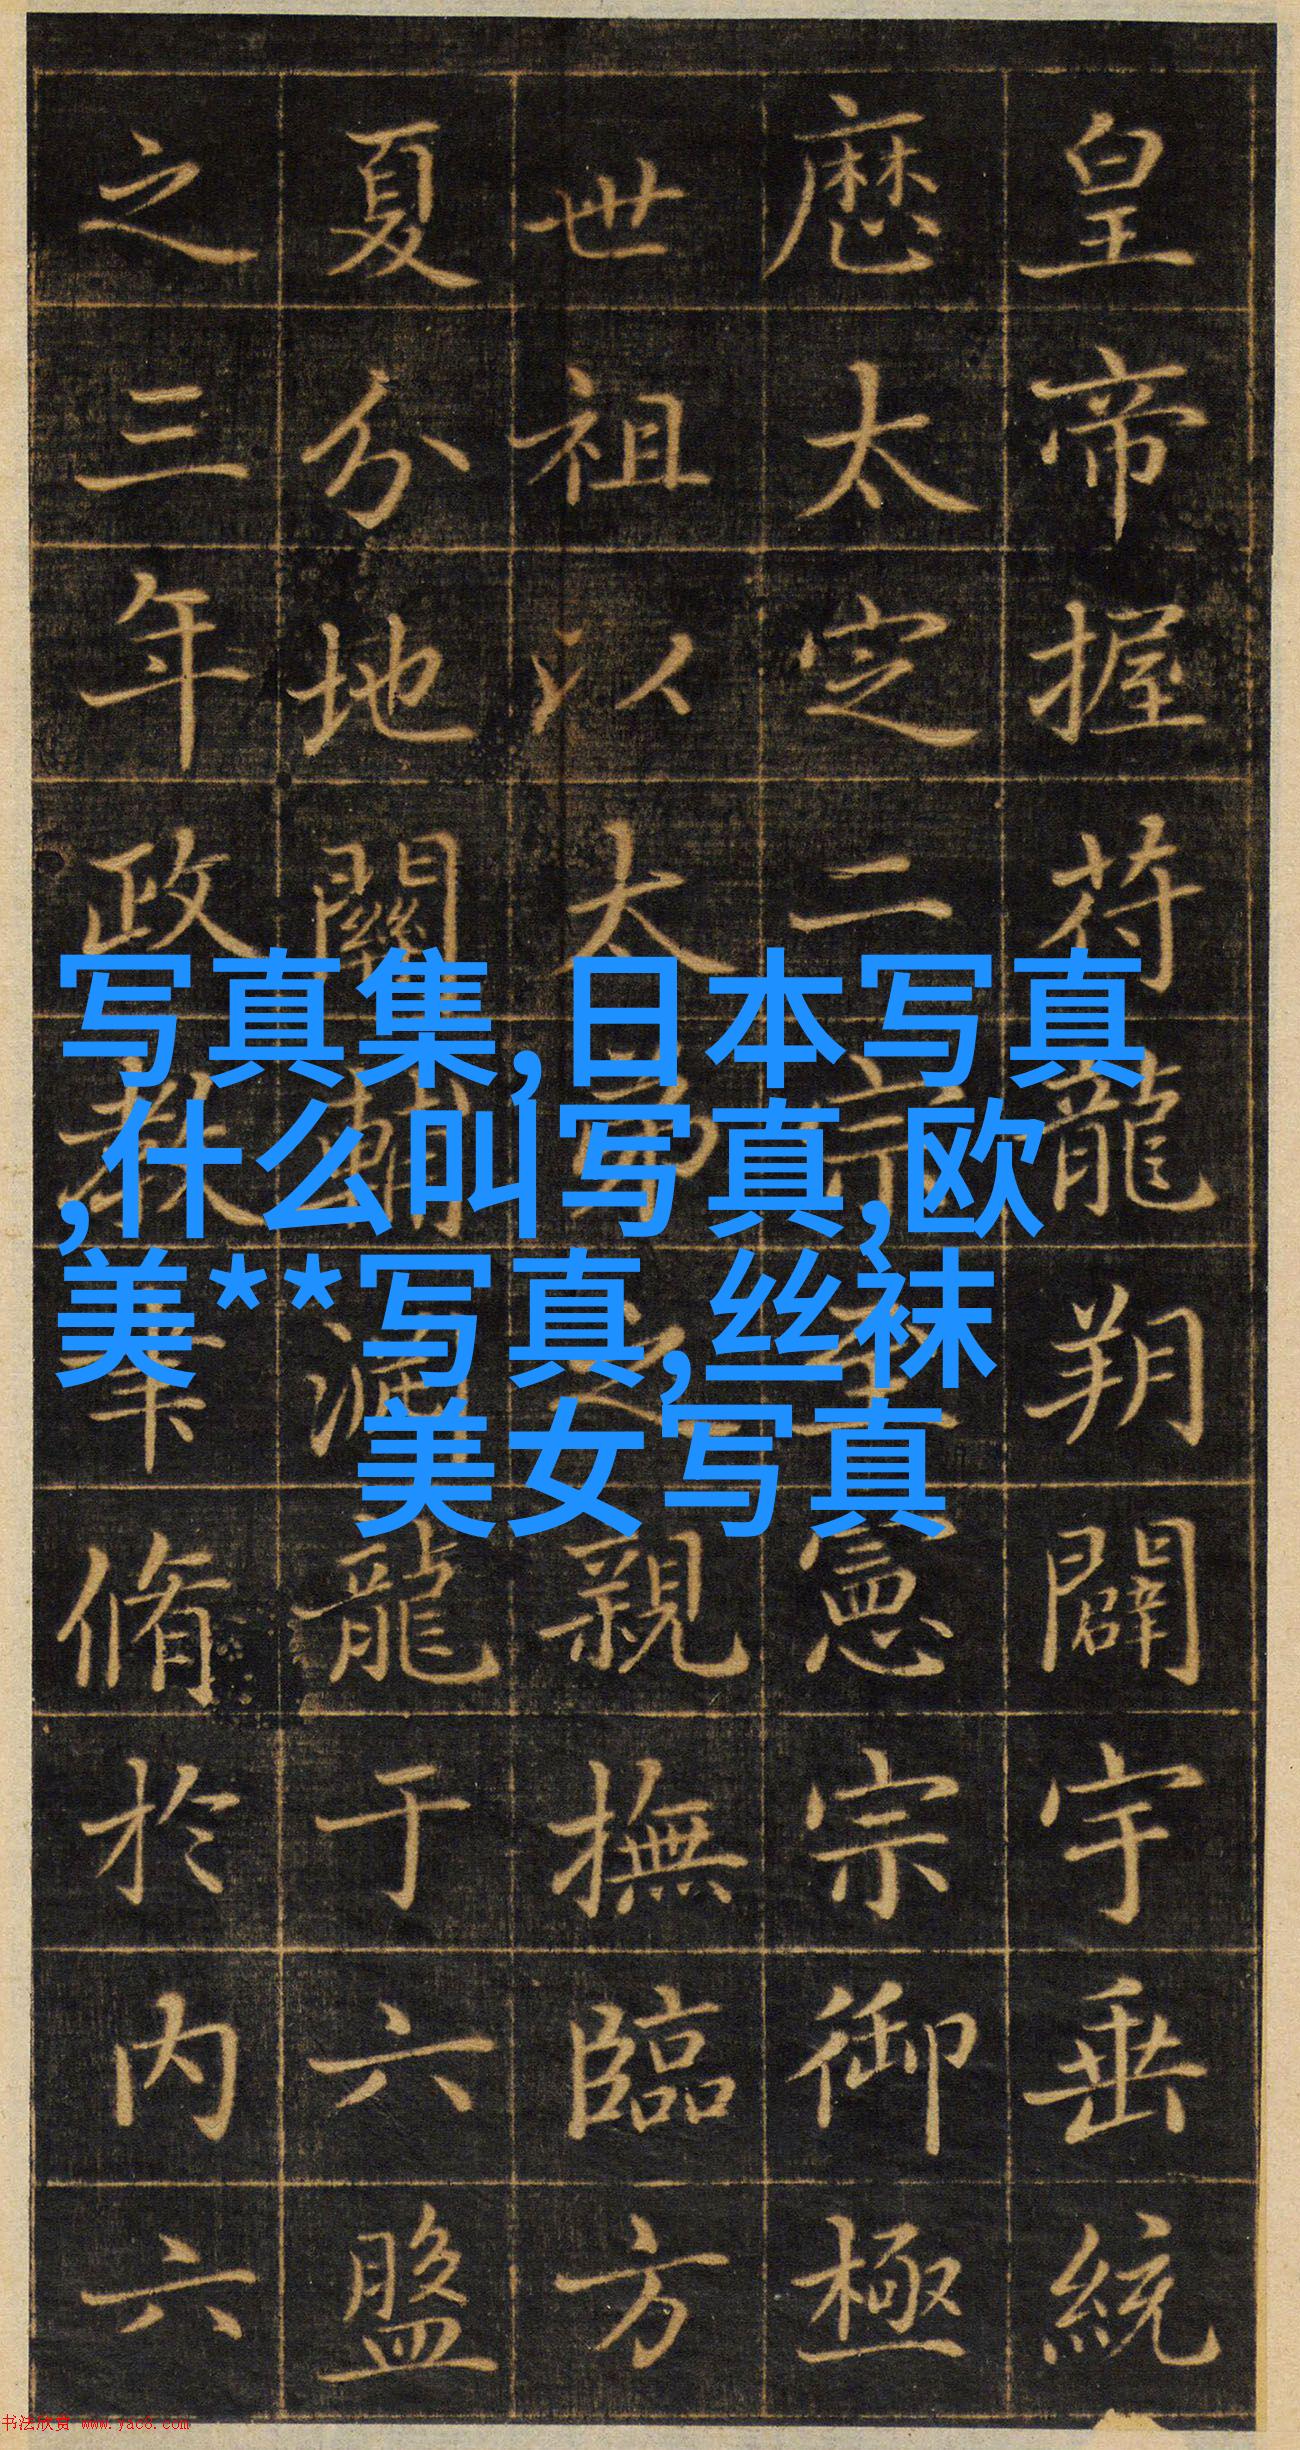 皇帝握符龍朔闢宇垂統
歷太定二宗至憲宗御極
世祖以太弟之親撫臨方
夏分地關輔龍于六盤
之三年政教聿脩於内六
写真集,日本写真
,什么叫写真,欧
美**写真,丝袜
美女写真
书法欣赏 www.yac8.com